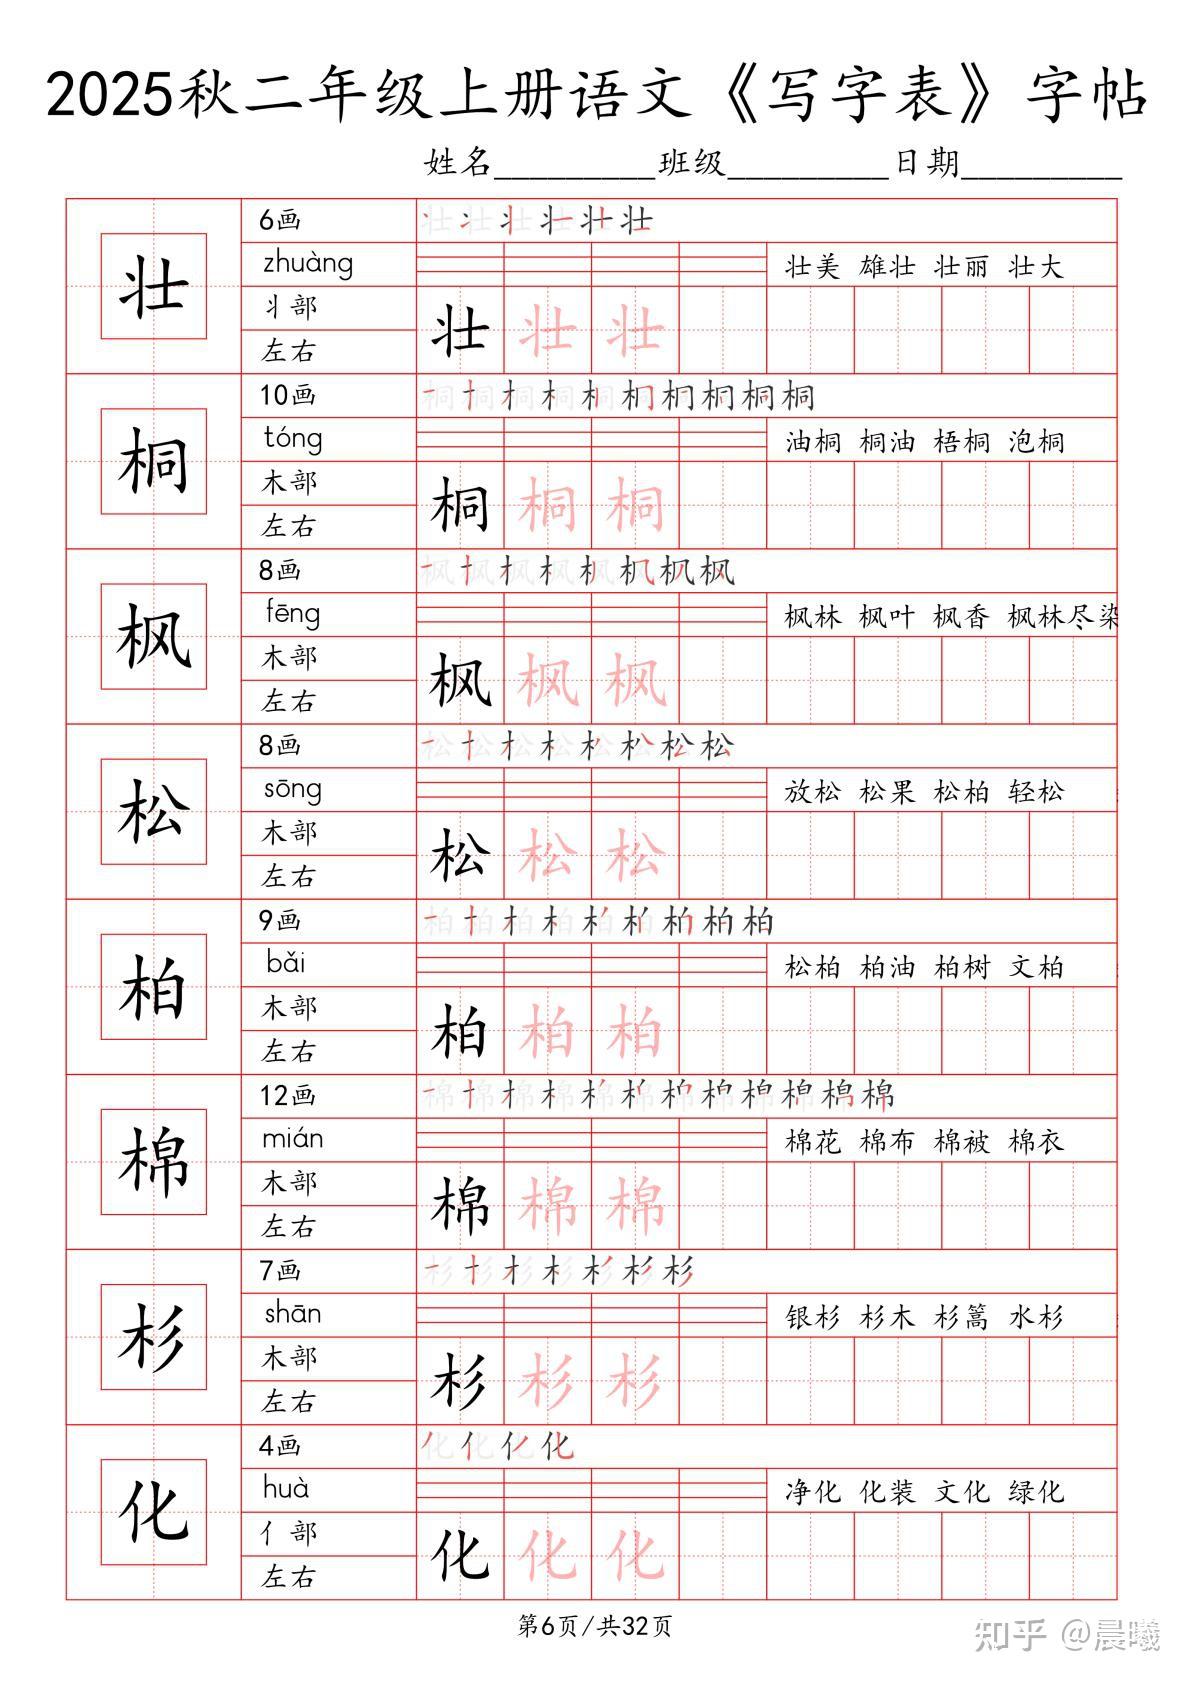 2025秋二年级上册语文《写字表》字帖
姓名_________班级_________日期_________
壮
6画
壮 壮 壮 壮 壮 壮
zhuàng
壮美 雄壮 壮丽 壮大
丬部
左右
壮 壮 壮
桐
10画
桐 桐 桐 桐 桐 桐 桐 桐 桐 桐
tóng
油桐 桐油 梧桐 泡桐
木部
左右
桐 桐 桐
枫
8画
枫 枫 枫 枫 枫 枫 枫 枫
fēng
枫林 枫叶 枫香 枫林尽染
木部
左右
枫 枫 枫
松
8画
松 松 松 松 松 松 松 松
sōng
放松 松果 松柏 轻松
木部
左右
松 松 松
柏
9画
柏 柏 柏 柏 柏 柏 柏 柏 柏
bǎi
松柏 柏油 柏树 文柏
木部
左右
柏 柏 柏
棉
12画
棉 棉 棉 棉 棉 棉 棉 棉 棉 棉 棉 棉
mián
棉花 棉布 棉被 棉衣
木部
左右
棉 棉 棉
杉
7画
杉 杉 杉 杉 杉 杉 杉
shān
银杉 杉木 杉篙 水杉
木部
左右
杉 杉 杉
化
4画
化 化 化 化
huà
净化 化装 文化 绿化
亻部
左右
化 化 化
第6页/共32页
知乎 @晨曦